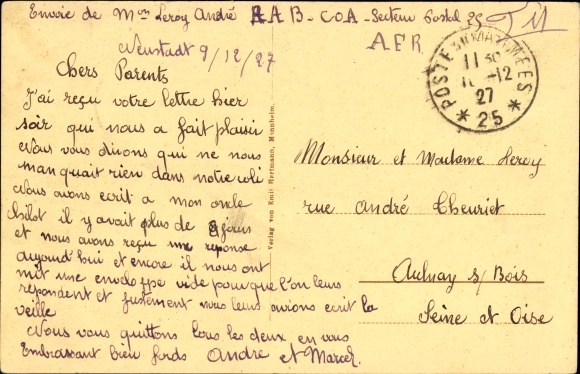 Envoie de Mr Leroy André A A B - C O A - Secteur Postal 25
A F R
Neustadt 9/12/27
Chers Parents
J'ai reçu votre lettre hier
soir qui nous a fait plaisir
Nous vous dirons qui ne nous
manquait rien dans notre coli
Nous avons ecrit a mon oncle
il y avait plus de 8 jours
et nous avons reçu une reponse
aujourd'hui et encore il nous ont
mit une envelope vide pour que l'on leurs
repondent et justement nous leurs avions ecrit la
veille
Nous vous quittons tous les deux en vous
Embrassant bien fords André et Marcel.
Verlag von Emil Hartmann, Mannheim.
POSTE AUX ARMEES
11 30
12
27
* 25 *
Monsieur et Madame Leroy
rue André Theuriet
Aulnay s/ Bois
Seine et Oise